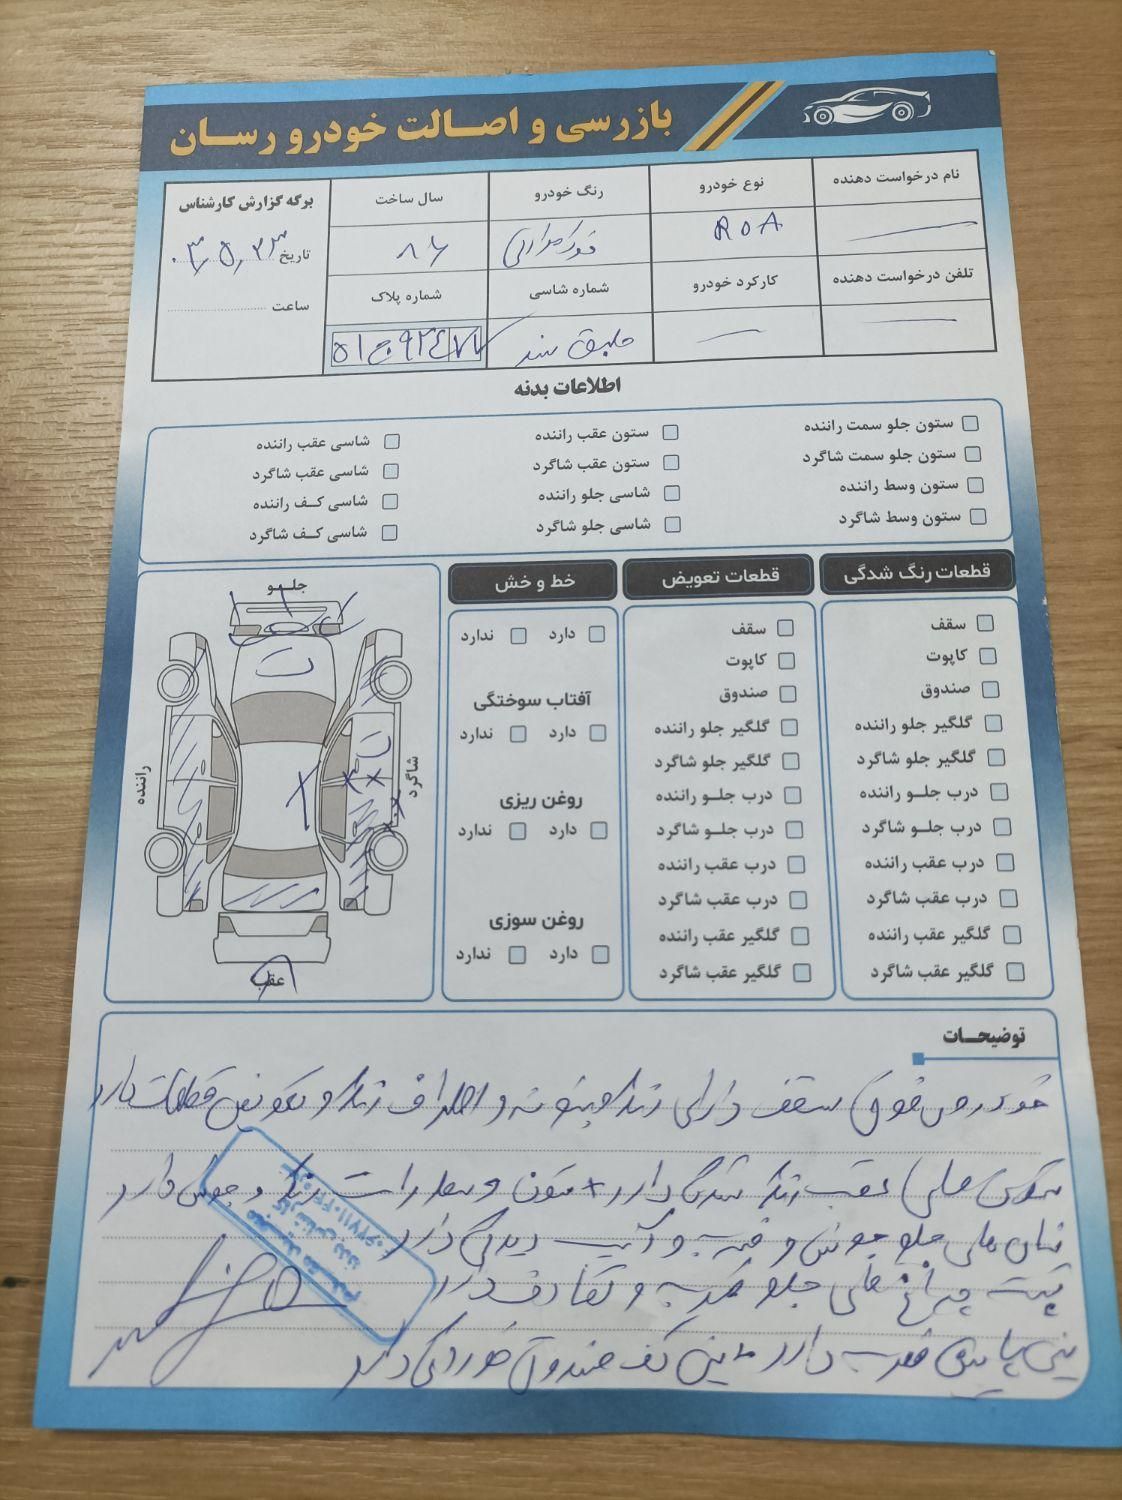 بازرسی و اصالت خودرو رسان
نام درخواست دهنده
نوع خودرو
رنگ خودرو
سال ساخت
برگه گزارش کارشناس
ROA
۸۶
تاریخ ۰۳,۵,۲۳
تلفن درخواست دهنده
کارکرد خودرو
شماره شاسی
شماره پلاک
ساعت
طبق سند
اطلاعات بدنه
ستون جلو سمت راننده
ستون عقب راننده
شاسی عقب راننده
ستون جلو سمت شاگرد
ستون عقب شاگرد
شاسی عقب شاگرد
ستون وسط راننده
شاسی جلو راننده
شاسی کف راننده
ستون وسط شاگرد
شاسی جلو شاگرد
شاسی کف شاگرد
قطعات رنگ شدگی
سقف
کاپوت
صندوق
گلگیر جلو راننده
گلگیر جلو شاگرد
درب جلو راننده
درب جلو شاگرد
درب عقب راننده
درب عقب شاگرد
گلگیر عقب راننده
گلگیر عقب شاگرد
قطعات تعویض
سقف
کاپوت
صندوق
گلگیر جلو راننده
گلگیر جلو شاگرد
درب جلو راننده
درب جلو شاگرد
درب عقب راننده
درب عقب شاگرد
گلگیر عقب راننده
گلگیر عقب شاگرد
خط و خش
دارد ندارد
آفتاب سوختگی
دارد ندارد
روغن ریزی
دارد ندارد
روغن سوزی
دارد ندارد
جلو
ت
ت
راننده
شاگرد
عقب
توضیحات
خودروی فوق سقف دارای رنگ و بتونه و اطراف رنگ و تعویض قطعات دارد
عقب رنگ شدگی دارد + ستون و رنگ و جوش دارد
جلو جوش و ضربه و آسیب دیدگی دارد
پشت چراغ های جلو ضربه و تصادف دارد
سینی پایین ضربه دارد + سینی کف صندوق خوردگی دارد